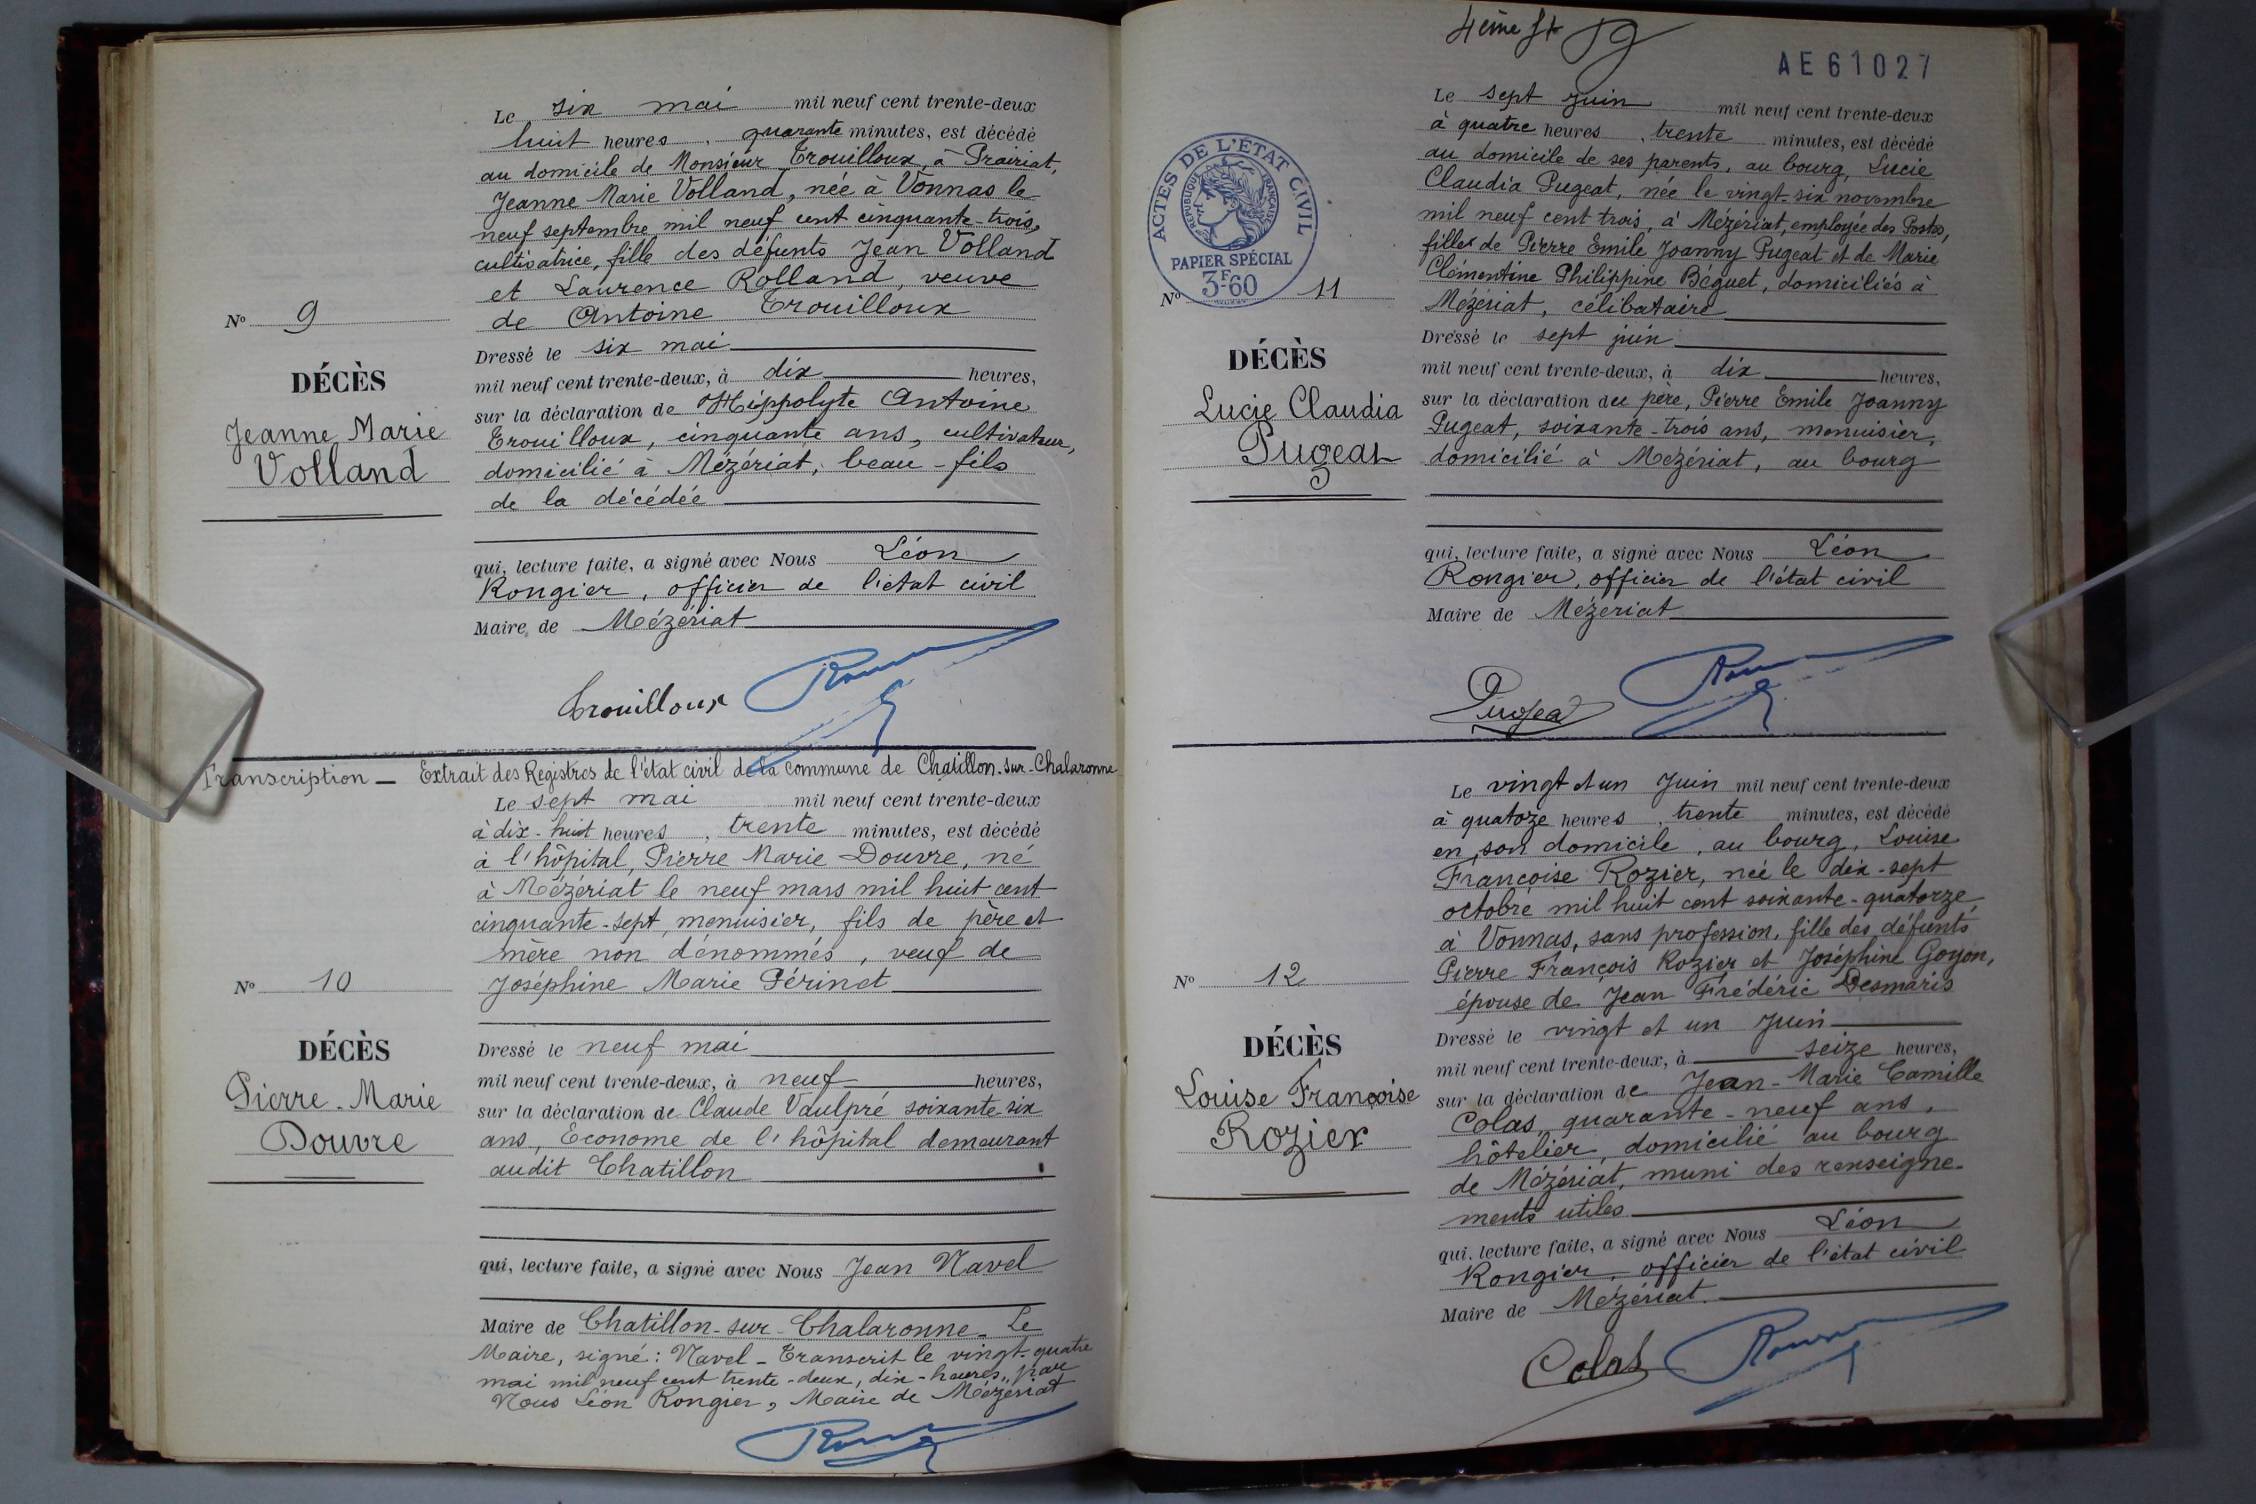 Le six mai mil neuf cent trente-deux
huit heures, quarante minutes, est décédé
au domicile de Monsieur Trouilloux, à Prairiat,
Jeanne Marie Volland, née à Vonnas le
neuf septembre mil neuf cent cinquante-trois,
cultivatrice, fille des défunts Jean Volland
et Laurence Rolland, veuve
de Antoine Trouilloux
Nº 9
DÉCÈS
Jeanne Marie
Volland
Dressé le six mai
mil neuf cent trente-deux, à dix heures,
sur la déclaration de Hippolyte Antoine
Trouilloux, cinquante ans, cultivateur,
domicilié à Mézériat, beau-fils
de la décédée
qui, lecture faite, a signé avec Nous Léon
Rongier, officier de l'état civil
Maire de Mézériat
Trouilloux
Transcription — Extrait des Registres de l'état civil de la commune de Chatillon-sur-Chalaronne
Le sept mai mil neuf cent trente-deux
à dix-huit heures, trente minutes, est décédé
à l'hôpital, Pierre Marie Douvre, né
à Mézériat le neuf mars mil huit cent
cinquante-sept, menuisier, fils de père et
mère non dénommés, veuf de
Joséphine Marie Périnet
Nº 10
DÉCÈS
Pierre-Marie
Douvre
Dressé le neuf mai
mil neuf cent trente-deux, à neuf heures,
sur la déclaration de Claude Vaulpré soixante-six
ans, Econome de l'hôpital demeurant
audit Chatillon
qui, lecture faite, a signé avec Nous Jean Navel
Maire de Chatillon-sur-Chalaronne_ Le
Maire, signé: Navel_ Transcrit le vingt-quatre
mai mil neuf cent trente-deux, dix-heures, par
Nous Léon Rongier, Maire de Mézériat
4ème
AE61027
Le sept juin mil neuf cent trente-deux
à quatre heures, trente minutes, est décédé
au domicile de ses parents, au bourg, Lucie
Claudia Pugeat, née le vingt-six novembre
mil neuf cent trois, à Mézériat, employée des Postes,
fille de Pierre Emile Joanny Pugeat et de Marie
Clémentine Philippine Béguet, domiciliés à
Mézériat, célibataire
ACTES DE L'ÉTAT CIVIL
RÉPUBLIQUE FRANÇAISE
PAPIER SPÉCIAL
3F.60
Nº 11
DÉCÈS
Lucie Claudia
Pugeat
Dressé le sept juin
mil neuf cent trente-deux, à dix heures,
sur la déclaration du père, Pierre Emile Joanny
Pugeat, soixante-trois ans, menuisier,
domicilié à Mézériat, au bourg
qui, lecture faite, a signé avec Nous Léon
Rongier, officier de l'état civil
Maire de Mézeriat
Pugeat
Le vingt et un Juin mil neuf cent trente-deux
à quatoze heures, trente minutes, est décédé
en son domicile, au bourg, Louise
Françoise Rozier, née le dix-sept
octobre mil huit cent soixante-quatorze
à Vonnas, sans profession, fille des défunts
Pierre François Rozier et Joséphine Goyon,
épouse de Jean Frédéric Desmaris
Nº 12
DÉCÈS
Louise Françoise
Rozier
Dressé le vingt et un Juin
mil neuf cent trente-deux, à seize heures,
sur la déclaration de Jean-Marie Camille
Colas, quarante-neuf ans,
hôtelier, domicilié au bourg
de Mézériat, muni des renseigne-
ments utiles
qui, lecture faite, a signé avec Nous Léon
Rongier, officier de l'état civil
Maire de Mézériat.
Colas